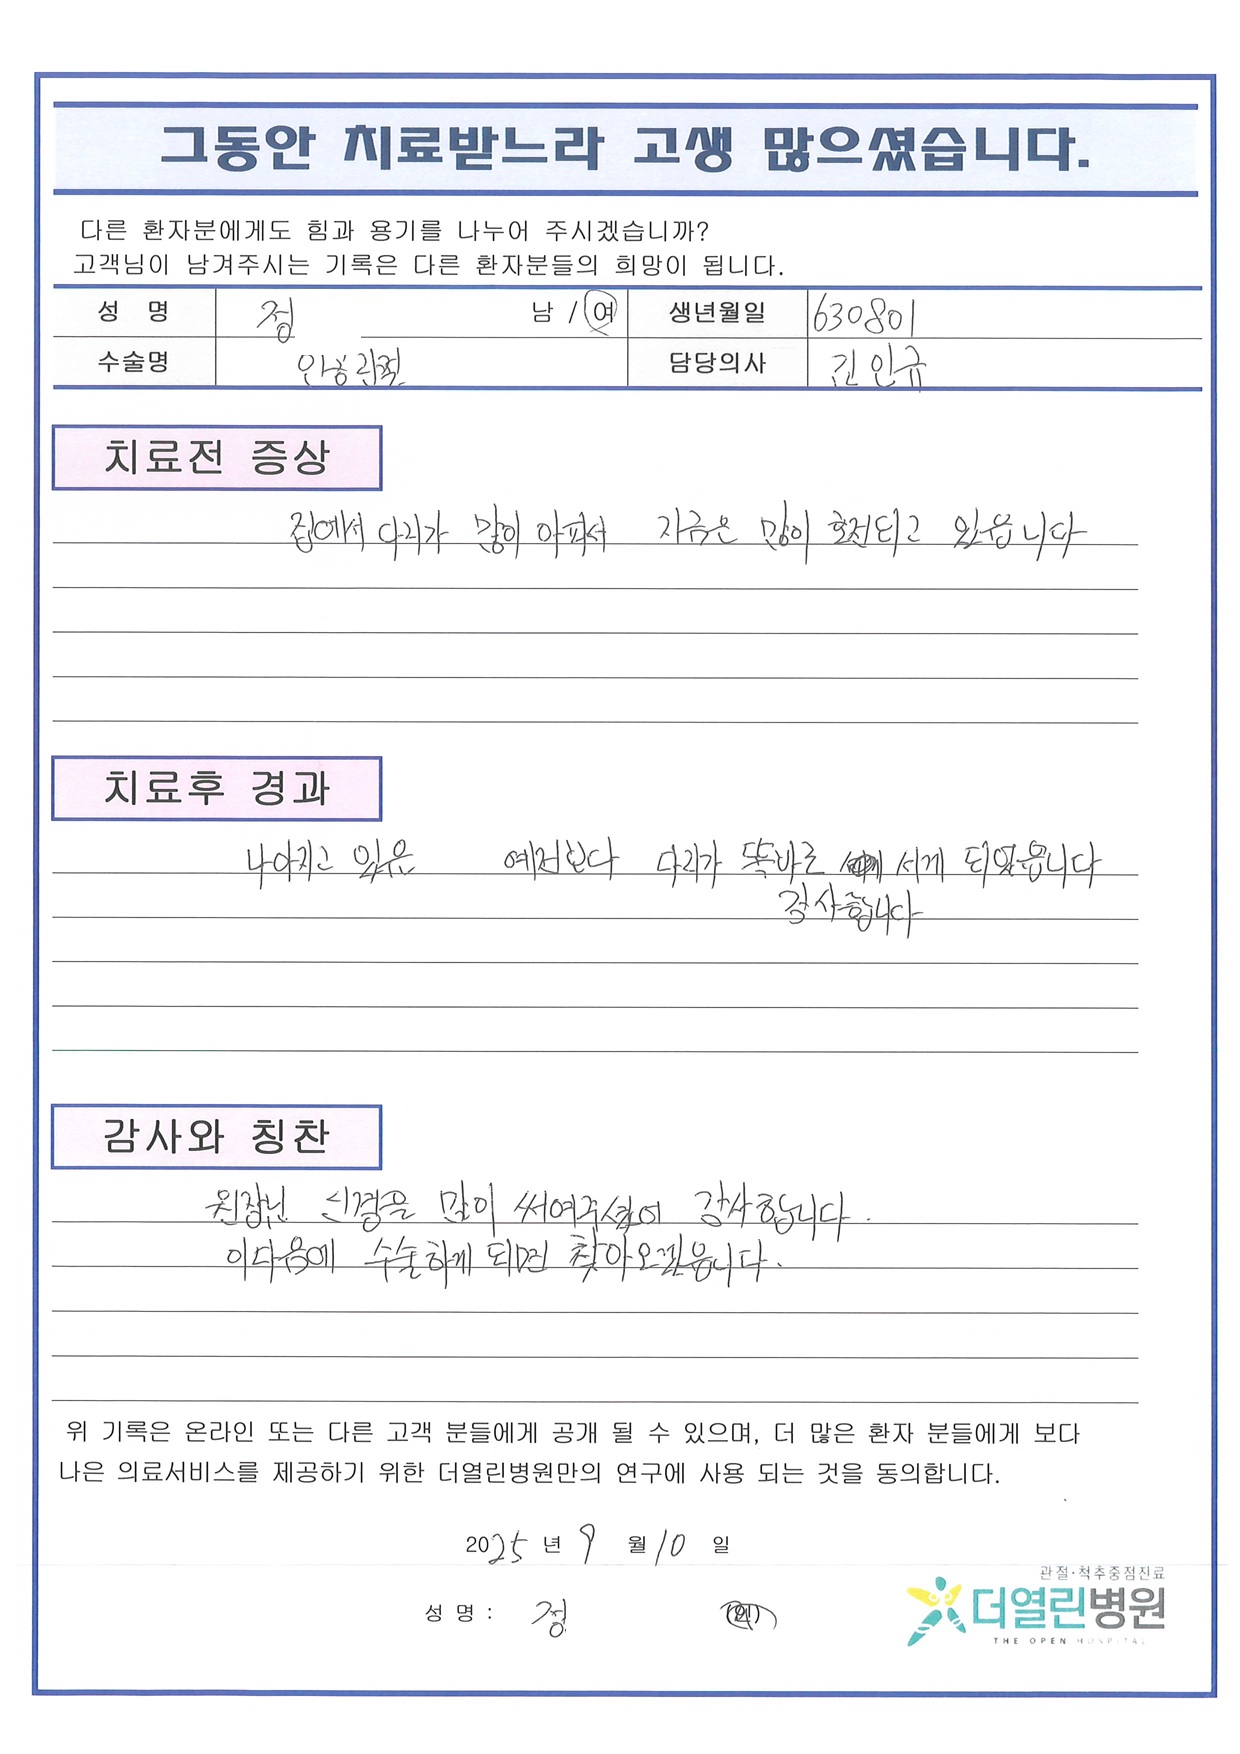 그동안 치료받느라 고생 많으셨습니다.
다른 환자분에게도 힘과 용기를 나누어 주시겠습니까?
고객님이 남겨주시는 기록은 다른 환자분들의 희망이 됩니다.
성 명 정 남 / 여 생년월일 630801
수술명 인공관절 담당의사 김인규
치료전 증상
집에서 다리가 많이 아파서 지금은 많이 호전되고 있읍니다
치료후 경과
나아지고 있음 예전보다 다리가 똑바로 서게 되었읍니다
감사합니다
감사와 칭찬
원장님 신경을 많이 써여주셨어 감사합니다.
이다음에 수술하게 되면 찾아오겠읍니다.
위 기록은 온라인 또는 다른 고객 분들에게 공개 될 수 있으며, 더 많은 환자 분들에게 보다
나은 의료서비스를 제공하기 위한 더열린병원만의 연구에 사용 되는 것을 동의합니다.
2025 년 9 월 10 일
관절·척추중점진료
성 명 : 정 (인)
더열린병원
THE OPEN HOSPITAL